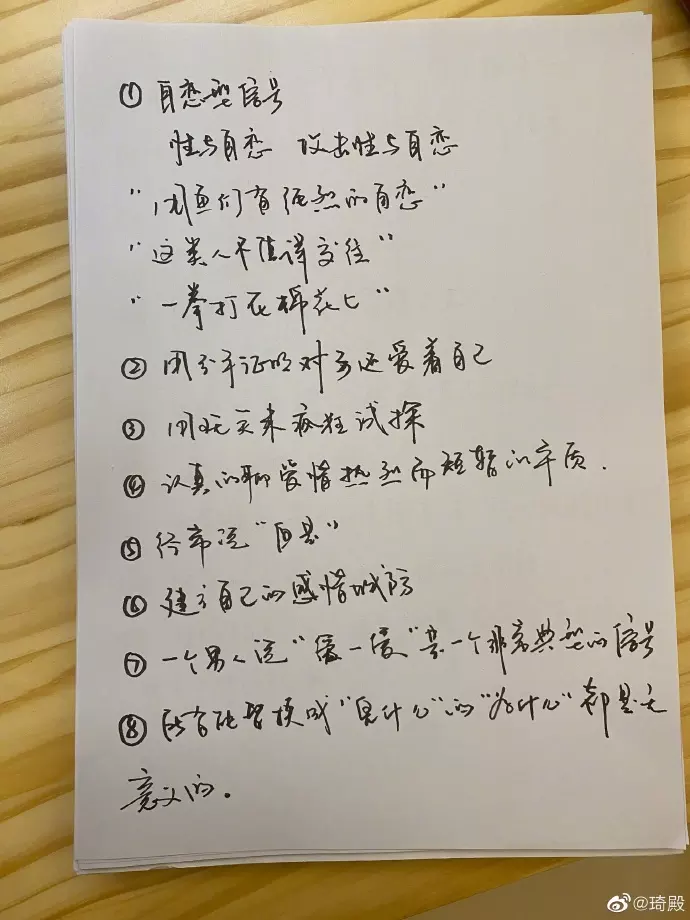 ① 自恋型信号
性与自恋 攻击性与自恋
"闭鱼们有强烈的自恋"
"这类人不值得交往"
"一拳打在棉花上"
② 用分手证明对方还爱着自己
③ 用玩笑来疯狂试探
④ 认真的聊爱情热烈而短暂的本质.
⑤ 经常说"但是"
⑥ 建立自己的感情城防
⑦ 一个男人说"缓一缓"是一个非常典型的信号
⑧ 所有能替换成"凭什么"的"为什么"都是无
意义的。
@琦殿